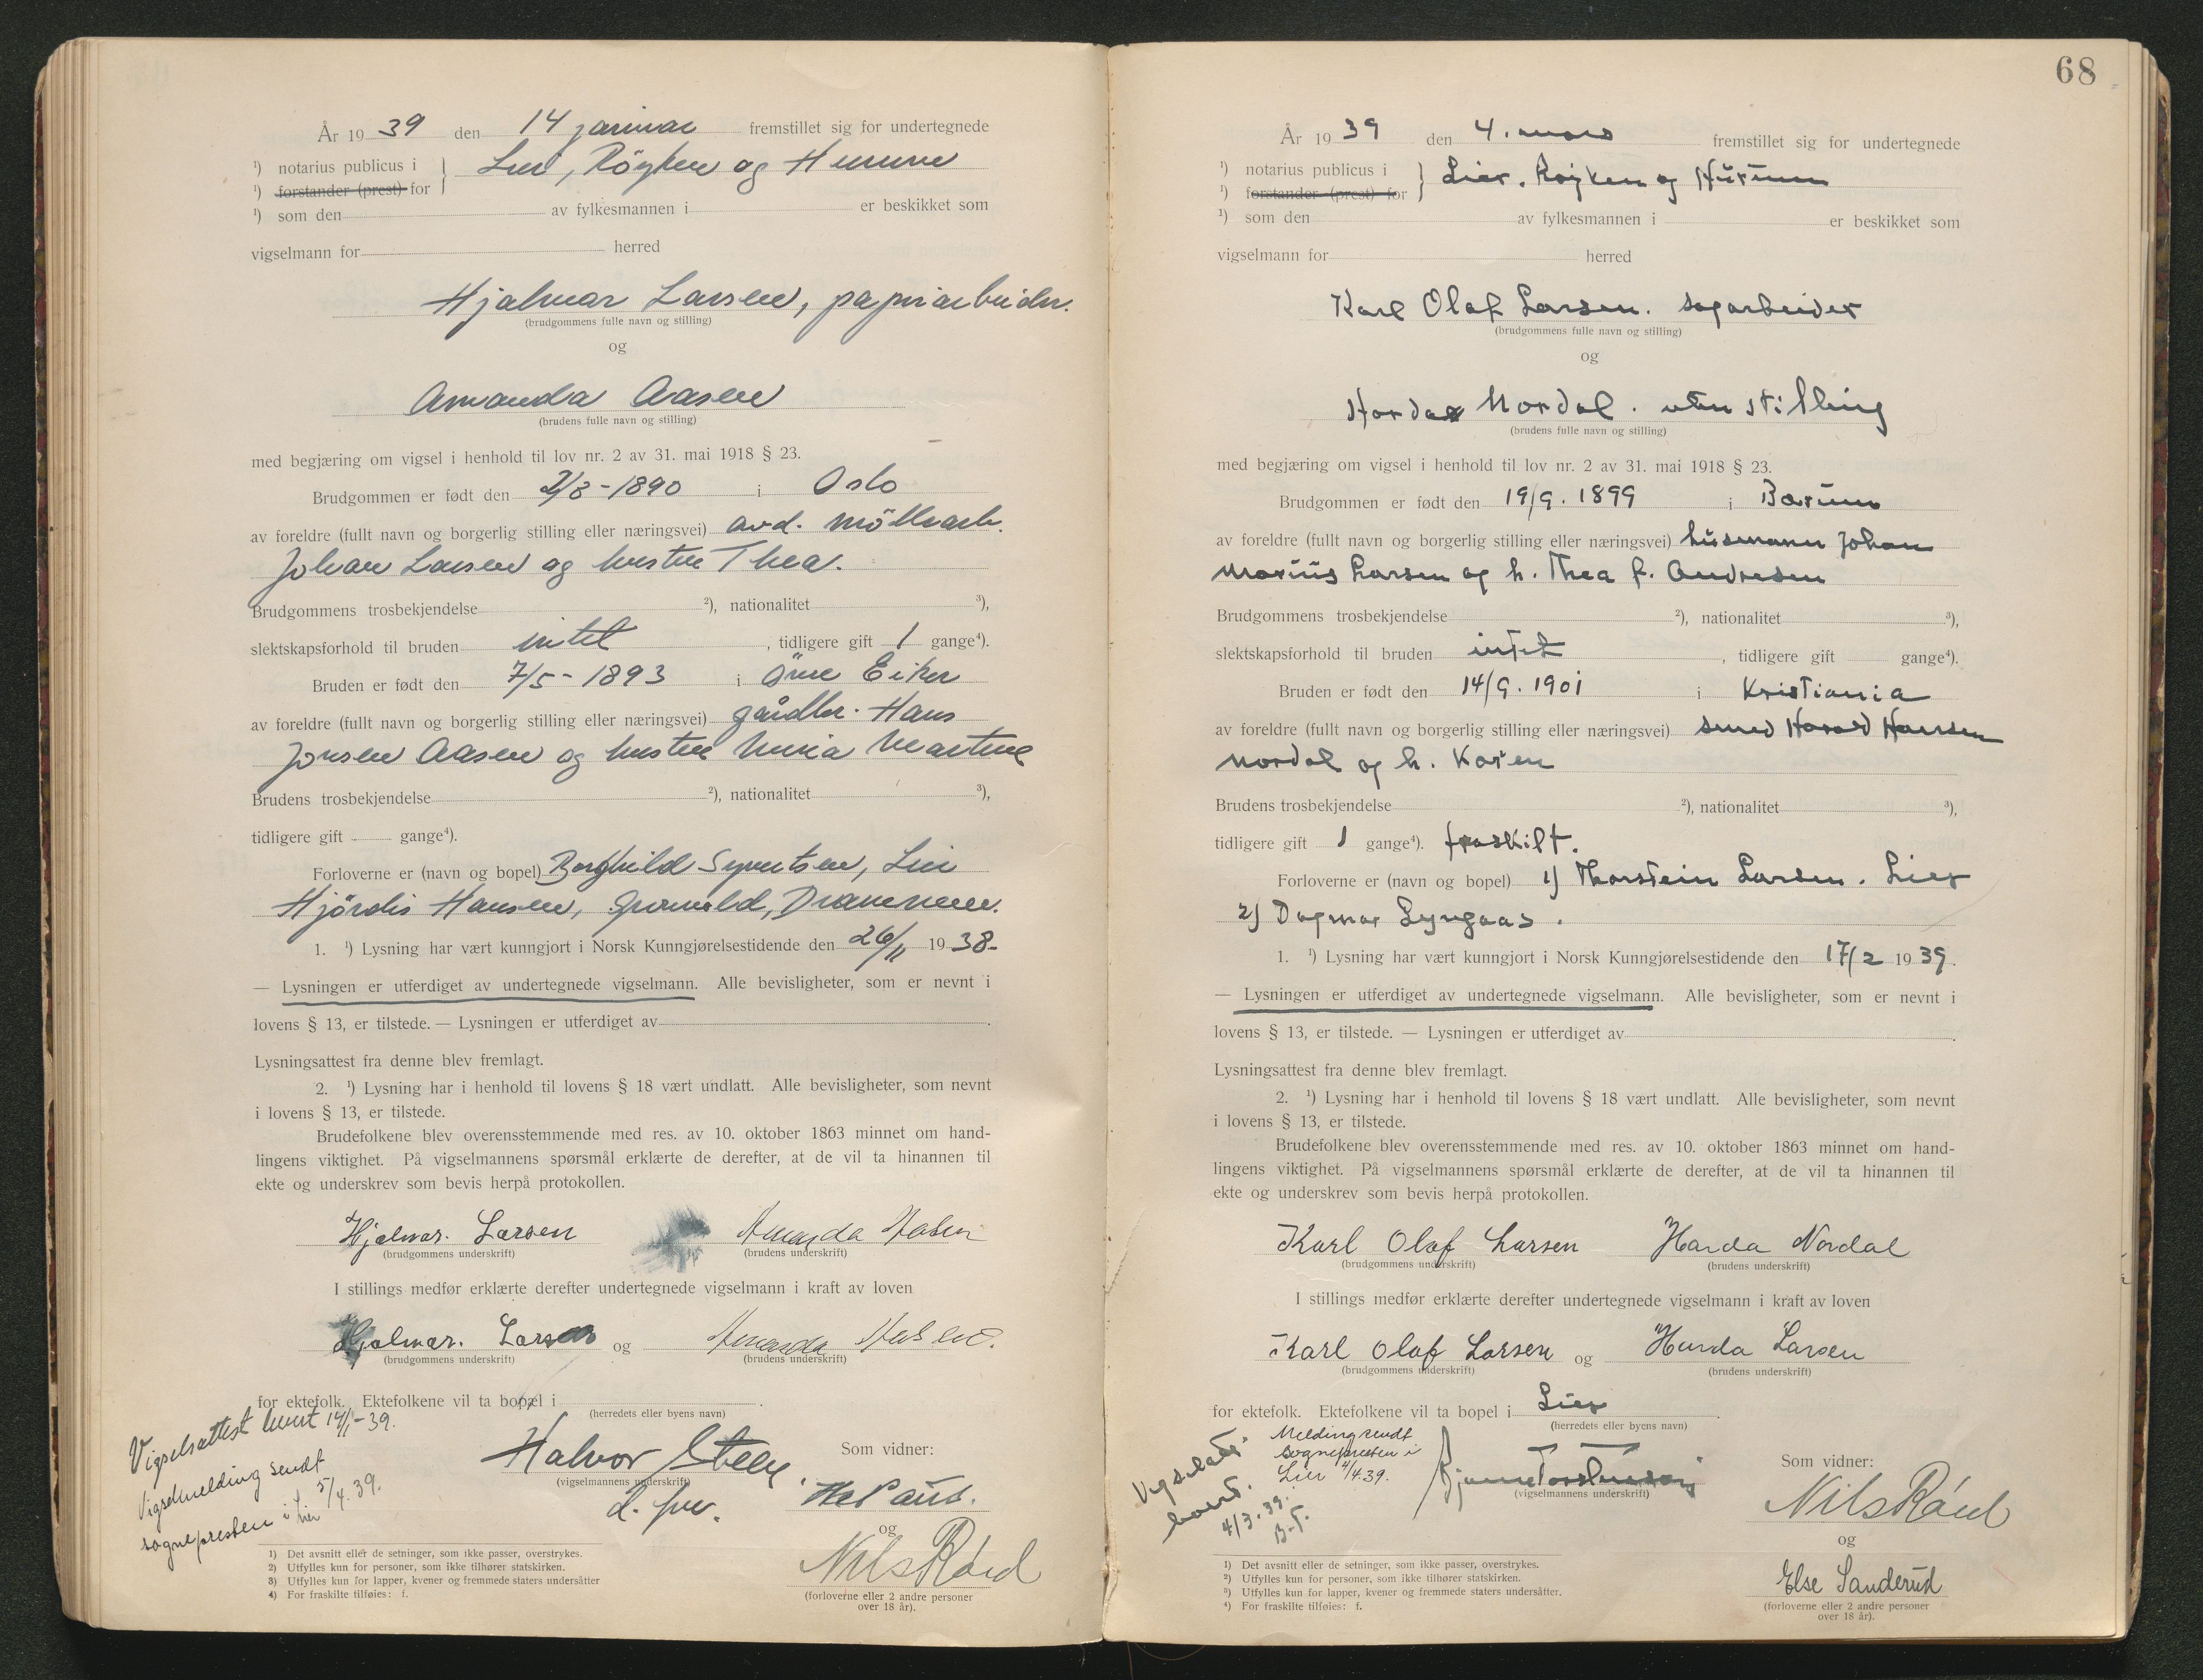 År 19 39 den 14 januar fremstillet sig for undertegnede
¹) notarius publicus i } Lier, Röyken og Hurum
¹) forstander (prest) for
¹) som den av fylkesmannen i er beskikket som
vigselmann for herred
Hjalmar Larsen, papirarbeider.
(brudgommens fulle navn og stilling)
og
Amanda Aasen
(brudens fulle navn og stilling)
med begjæring om vigsel i henhold til lov nr. 2 av 31. mai 1918 § 23.
Brudgommen er født den 2/8-1890 i Oslo
av foreldre (fullt navn og borgerlig stilling eller næringsvei) avd. möllearb.
Johan Larsen og hustru Thea.
Brudgommens trosbekjendelse ²), nationalitet ³),
slektskapsforhold til bruden intet, tidligere gift 1 gange⁴).
Bruden er født den 7/5-1893 i Övre Eiker
av foreldre (fullt navn og borgerlig stilling eller næringsvei) gårdbr. Hans
Jonsen Aasen og hustru Maria Martine
Brudens trosbekjendelse ²), nationalitet ³),
tidligere gift gange⁴).
Forloverne er (navn og bopel) Borghild Syvertsen, Lier
Hjördis Hansen, Drammen.
1. ¹) Lysning har vært kunngjort i Norsk Kunngjørelsestidende den 26/11 19 38.
— Lysningen er utferdiget av undertegnede vigselmann. Alle bevisligheter, som er nevnt i
lovens § 13, er tilstede. — Lysningen er utferdiget av .
Lysningsattest fra denne blev fremlagt.
2. ¹) Lysning har i henhold til lovens § 18 vært undlatt. Alle bevisligheter, som nevnt
i lovens § 13, er tilstede.
Brudefolkene blev overensstemmende med res. av 10. oktober 1863 minnet om hand-
lingens viktighet. På vigselmannens spørsmål erklærte de derefter, at de vil ta hinannen til
ekte og underskrev som bevis herpå protokollen.
Hjalmar. Larsen Amanda Aasen
(brudgommens underskrift) (brudens underskrift)
I stillings medfør erklærte derefter undertegnede vigselmann i kraft av loven
Hjalmar. Larsen og Amanda Aasen.
(brudgommens underskrift) (brudens underskrift)
for ektefolk. Ektefolkene vil ta bopæl i .
(herredets eller byens navn)
Vigselsattest levert 14/1-39.
Vigselmelding sendt
sognepresten i Lier 5/4.39.
Halvor Steen
(vigselmannens underskrift)
Som vidner:
og
Nils Röed
(forloverne eller 2 andre personer
over 18 år).
1) Det avsnitt eller de setninger, som ikke passer, overstrykes.
2) Utfylles kun for personer, som ikke tilhører statskirken.
3) Utfylles kun for lapper, kvener og fremmede staters undersåtter
4) For fraskilte tilføies: f.
68
År 19 39 den 4. mars fremstillet sig for undertegnede
¹) notarius publicus i } Lier. Röyken og Hurum
¹) forstander (prest) for
¹) som den av fylkesmannen i er beskikket som
vigselmann for herred
Karl Olaf Larsen. sagarbeider
(brudgommens fulle navn og stilling)
og
Harda Nordal. uten stilling
(brudens fulle navn og stilling)
med begjæring om vigsel i henhold til lov nr. 2 av 31. mai 1918 § 23.
Brudgommen er født den 19/9. 1899 i Bærum
av foreldre (fullt navn og borgerlig stilling eller næringsvei) husmann Johan
Marius Larsen og h. Thea f. Andresen
Brudgommens trosbekjendelse ²), nationalitet ³),
slektskapsforhold til bruden intet, tidligere gift gange⁴).
Bruden er født den 14/9. 1901 i Kristiania
av foreldre (fullt navn og borgerlig stilling eller næringsvei) smed Harald Hansen
Nordal og h. Karen
Brudens trosbekjendelse ²), nationalitet ³),
tidligere gift 1 gange⁴). fraskilt.
Forloverne er (navn og bopel) 1) Thorstein Larsen. Lier
2) Dagmar Lyngaas.
1. ¹) Lysning har vært kunngjort i Norsk Kunngjørelsestidende den 17/2 19 39.
— Lysningen er utferdiget av undertegnede vigselmann. Alle bevisligheter, som er nevnt i
lovens § 13, er tilstede. — Lysningen er utferdiget av .
Lysningsattest fra denne blev fremlagt.
2. ¹) Lysning har i henhold til lovens § 18 vært undlatt. Alle bevisligheter, som nevnt
i lovens § 13, er tilstede.
Brudefolkene blev overensstemmende med res. av 10. oktober 1863 minnet om hand-
lingens viktighet. På vigselmannens spørsmål erklærte de derefter, at de vil ta hinannen til
ekte og underskrev som bevis herpå protokollen.
Karl Olaf Larsen Harda Nordal
(brudgommens underskrift) (brudens underskrift)
I stillings medfør erklærte derefter undertegnede vigselmann i kraft av loven
Karl Olaf Larsen og Harda Larsen
(brudgommens underskrift) (brudens underskrift)
for ektefolk. Ektefolkene vil ta bopel i Lier.
(herredets eller byens navn)
Vigselatt.
levert.
4/3.39.
B.T.
Melding sendt
sognepresten i
Lier 4/4.39.
Bjarne Torstensen
(vigselmannens underskrift)
Som vidner:
Nils Röed
og
Else Sanderud
(forloverne eller 2 andre personer
over 18 år).
1) Det avsnitt eller de setninger, som ikke passer, overstrykes.
2) Utfylles kun for personer, som ikke tilhører statskirken.
3) Utfylles kun for lapper, kvener og fremmede staters undersåtter.
4) For fraskilte tilføies: f.